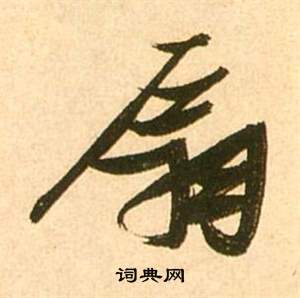 扇
词典网